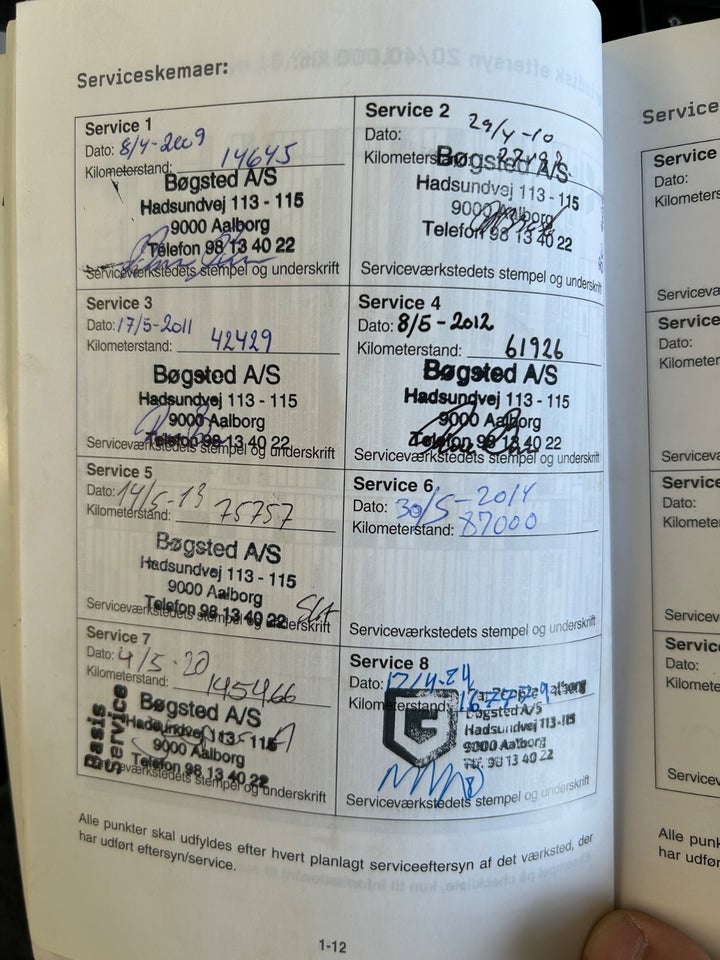 Serviceskemaer:
Service 1
Dato: 8/4-2009
Kilometerstand: 14645
Bøgsted A/S
Hadsundvej 113 - 115
9000 Aalborg
Telefon 98 13 40 22
Serviceværkstedets stempel og underskrift
Service 2
Dato: 29/4-10
Kilometerstand:
Bøgsted A/S
Hadsundvej 113 - 115
9000 Aalborg
Telefon 98 13 40 22
Serviceværkstedets stempel og underskrift
Service 3
Dato: 17/5-2011
Kilometerstand: 42429
Bøgsted A/S
Hadsundvej 113 - 115
9000 Aalborg
Telefon 98 13 40 22
Serviceværkstedets stempel og underskrift
Service 4
Dato: 8/5-2012
Kilometerstand: 61926
Bøgsted A/S
Hadsundvej 113 - 115
9000 Aalborg
Telefon 98 13 40 22
Serviceværkstedets stempel og underskrift
Service 5
Dato: 14/5-13
Kilometerstand: 75757
Bøgsted A/S
Hadsundvej 113 - 115
9000 Aalborg
Telefon 98 13 40 22
Serviceværkstedets stempel og underskrift
Service 6
Dato: 30/5-2014
Kilometerstand: 87000
Serviceværkstedets stempel og underskrift
Service 7
Dato: 4/5-20
Kilometerstand: 145466
Basis Service
Bøgsted A/S
Hadsundvej 113 - 115
9000 Aalborg
Telefon 98 13 40 22
Serviceværkstedets stempel og underskrift
Service 8
Dato: 17/4-24
Kilometerstand:
Aalborg
Bøgsted A/S
Hadsundvej 113-115
9000 Aalborg
Tlf. 98 13 40 22
Serviceværkstedets stempel og underskrift
Alle punkter skal udfyldes efter hvert planlagt serviceeftersyn af det værksted, der
har udført eftersyn/service.
1-12
Service
Service
Dato:
Kilometers
Servicevæ
Service
Dato:
Kilometer
Servicevæ
Service
Dato:
Kilomete
Serviceva
Servic
Dato:
Kilomete
Service
Alle punk
har udfø